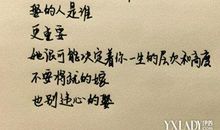 娶的人是谁
更重要
她很可能决定着你一生的层次和高度
不要将就的嫁
也别违心的娶
YXLADY.com